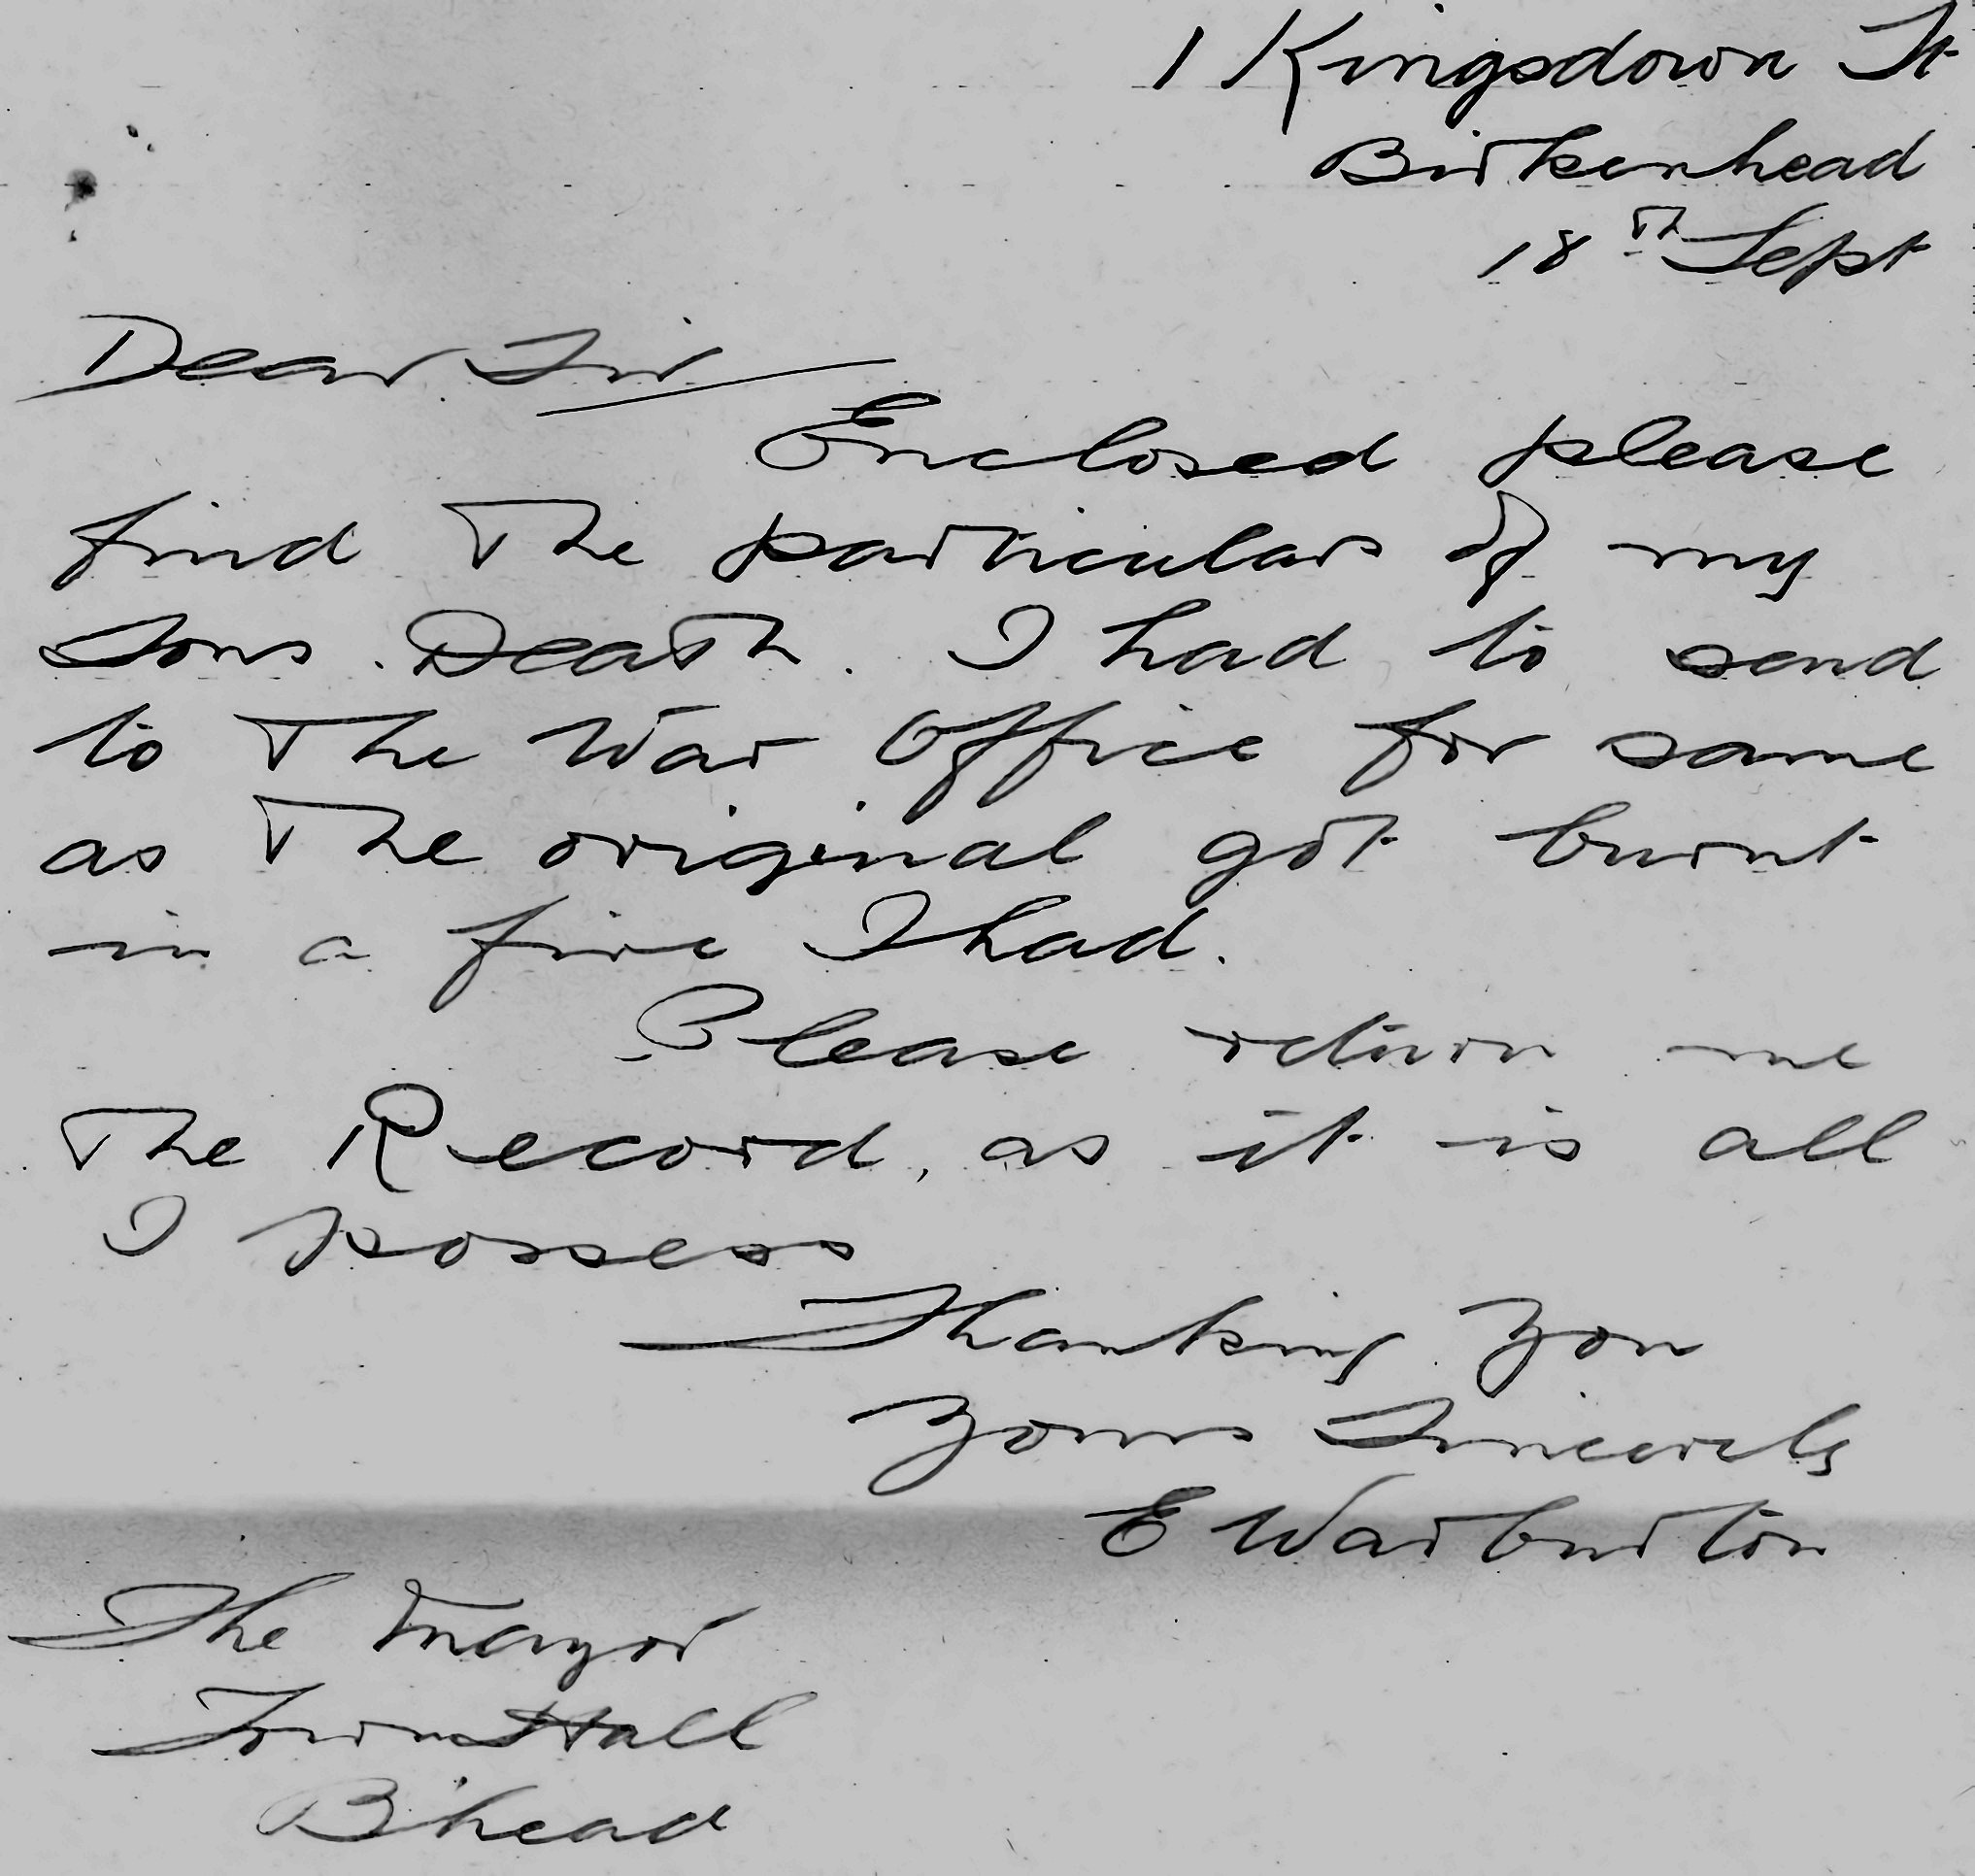 1 Kingsdown St
Birkenhead
18th Sept
Dear Sir
Enclosed please
find The particulars of my
Sons Death. I had to send
to The War Office for same
as The original got burnt
in a fire I had.
Please return me
The Record, as it is all
I possess
Thanking You
Yours Sincerely
E Warburton
The Mayor
Town Hall
B'head